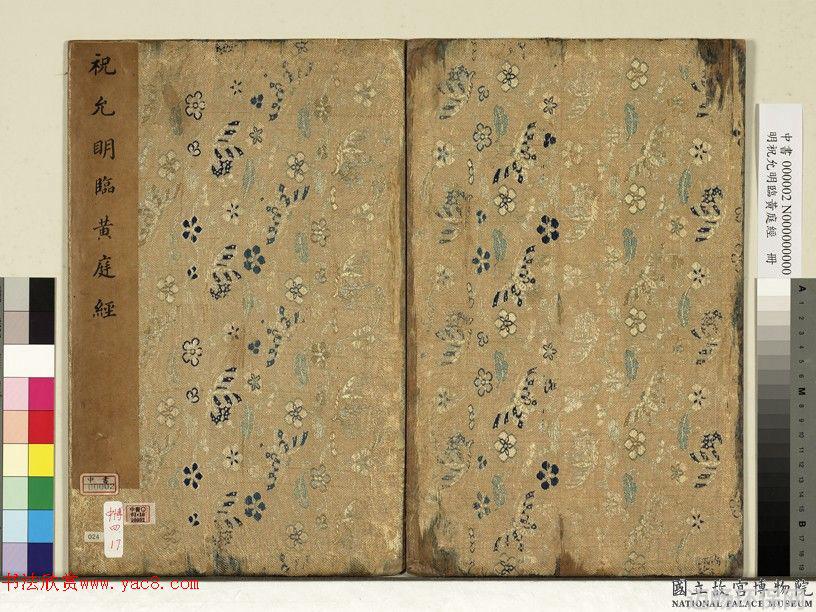 祝允明臨黃庭經
中書
00002
中博
四
17
024
中書 000002 N000000000
明祝允明臨黃庭經 冊
A 1 2 3 4 5 6 M 8 9 10 11 12 13 14 15 B 17 18 19
书法欣赏www.yac8.com
國立故宮博物院
NATIONAL PALACE MUSEUM